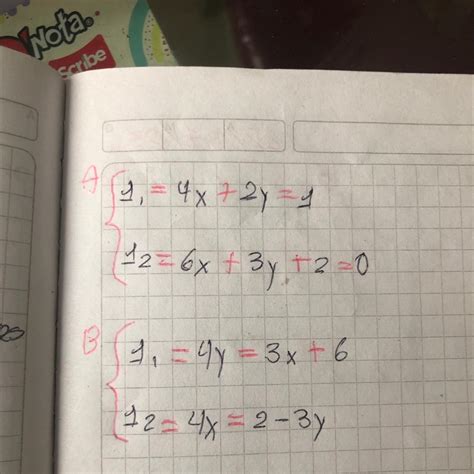 Nota.
Scribe
A
1₁ = 4x + 2y = 1
1₂ = 6x + 3y + 2 = 0
B
1₁ = 4y = 3x + 6
1₂ = 4x = 2 - 3y